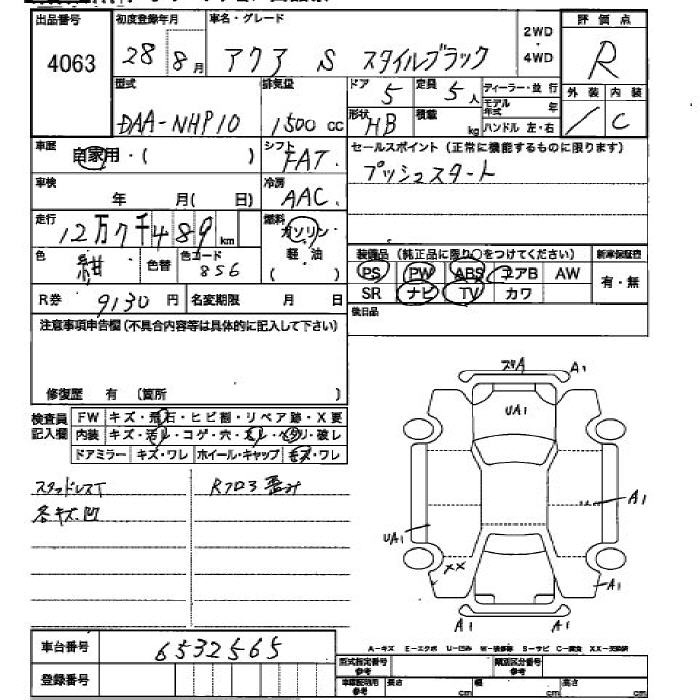 出品番号 初度登録年月 車名・グレード 2WD・4WD 評価点
4063 28 8月 アクア S スタイルブラック R
型式 排気量 ドア 5 定員 5人 ディーラー・並行 外装 内装
DAA-NHP10 1500cc 形状 HB 積載 kg モデル年式 年 / C
ハンドル 左・右
車歴 自家用・( ) シフト FAT. セールスポイント(正常に機能するものに限ります)
車検 年 月( 日) 冷房 AAC. プッシュスタート
走行 12万7千489km 燃料 ガソリン・軽油( )
色 紺 色替 色コード 856 装備品(純正品に限り○をつけてください) 新車保証書
PS PW ABS エアB AW 有・無
R券 9130円 名変期限 月 日 SR ナビ TV カワ
注意事項申告欄(不具合内容等は具体的に記入して下さい) 後日品
修復歴 有(箇所 )
検査員記入欄 FW キズ・飛石・ヒビ割・リペア跡・X要
内装 キズ・汚レ・コゲ・穴・スレ・ヘタリ・破レ
ドアミラー キズ・ワレ ホイール・キャップ キズ・ワレ
スタッドレスT
各キズ凹
A1
UA1
A1
UA1
XX
A1
A1 A1
A-キズ E-エクボ U-凹み W-波修理 S-サビ C-腐食 XX-交換済
車台番号 6532565
登録番号
型式指定番号 参考 類別区分番号 参考
長さ cm 幅 cm 高さ cm